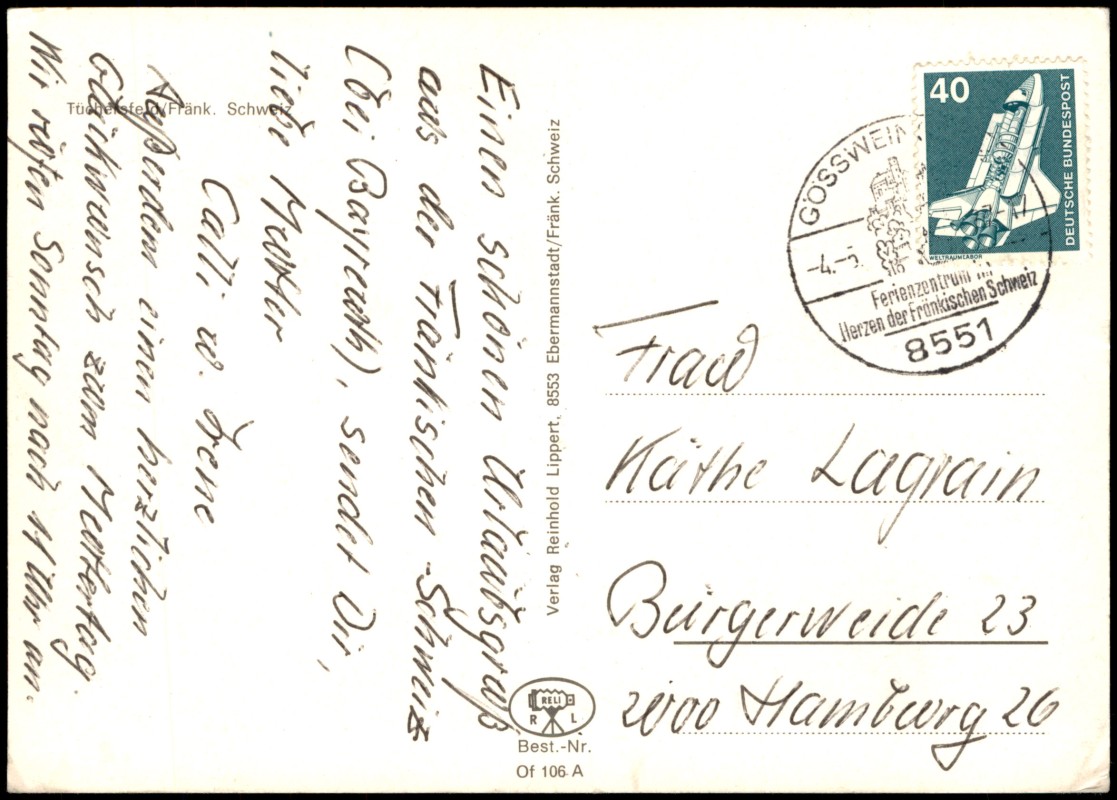 Tüchersfeld/Fränk. Schweiz
Einen schönen Urlaubsgruß
aus der Fränkischen Schweiz
(bei Bayreuth), sendet Dir,
liebe Mutter
Calli u. Irene
Außerdem einen herzlichen
Glückwunsch zum Muttertag.
Wir rufen Sonntag nach 11 Uhr an.
Verlag Reinhold Lippert, 8553 Ebermannstadt/Fränk. Schweiz
RELI
R L
Best.-Nr.
Of 106 A
40
DEUTSCHE BUNDESPOST
WELTRAUMLABOR
GÖSSWEIN
-4.-5.
Ferienzentrum im
Herzen der Fränkischen Schweiz
8551
Frau
Käthe Lagrain
Bürgerweide 23
2000 Hamburg 26